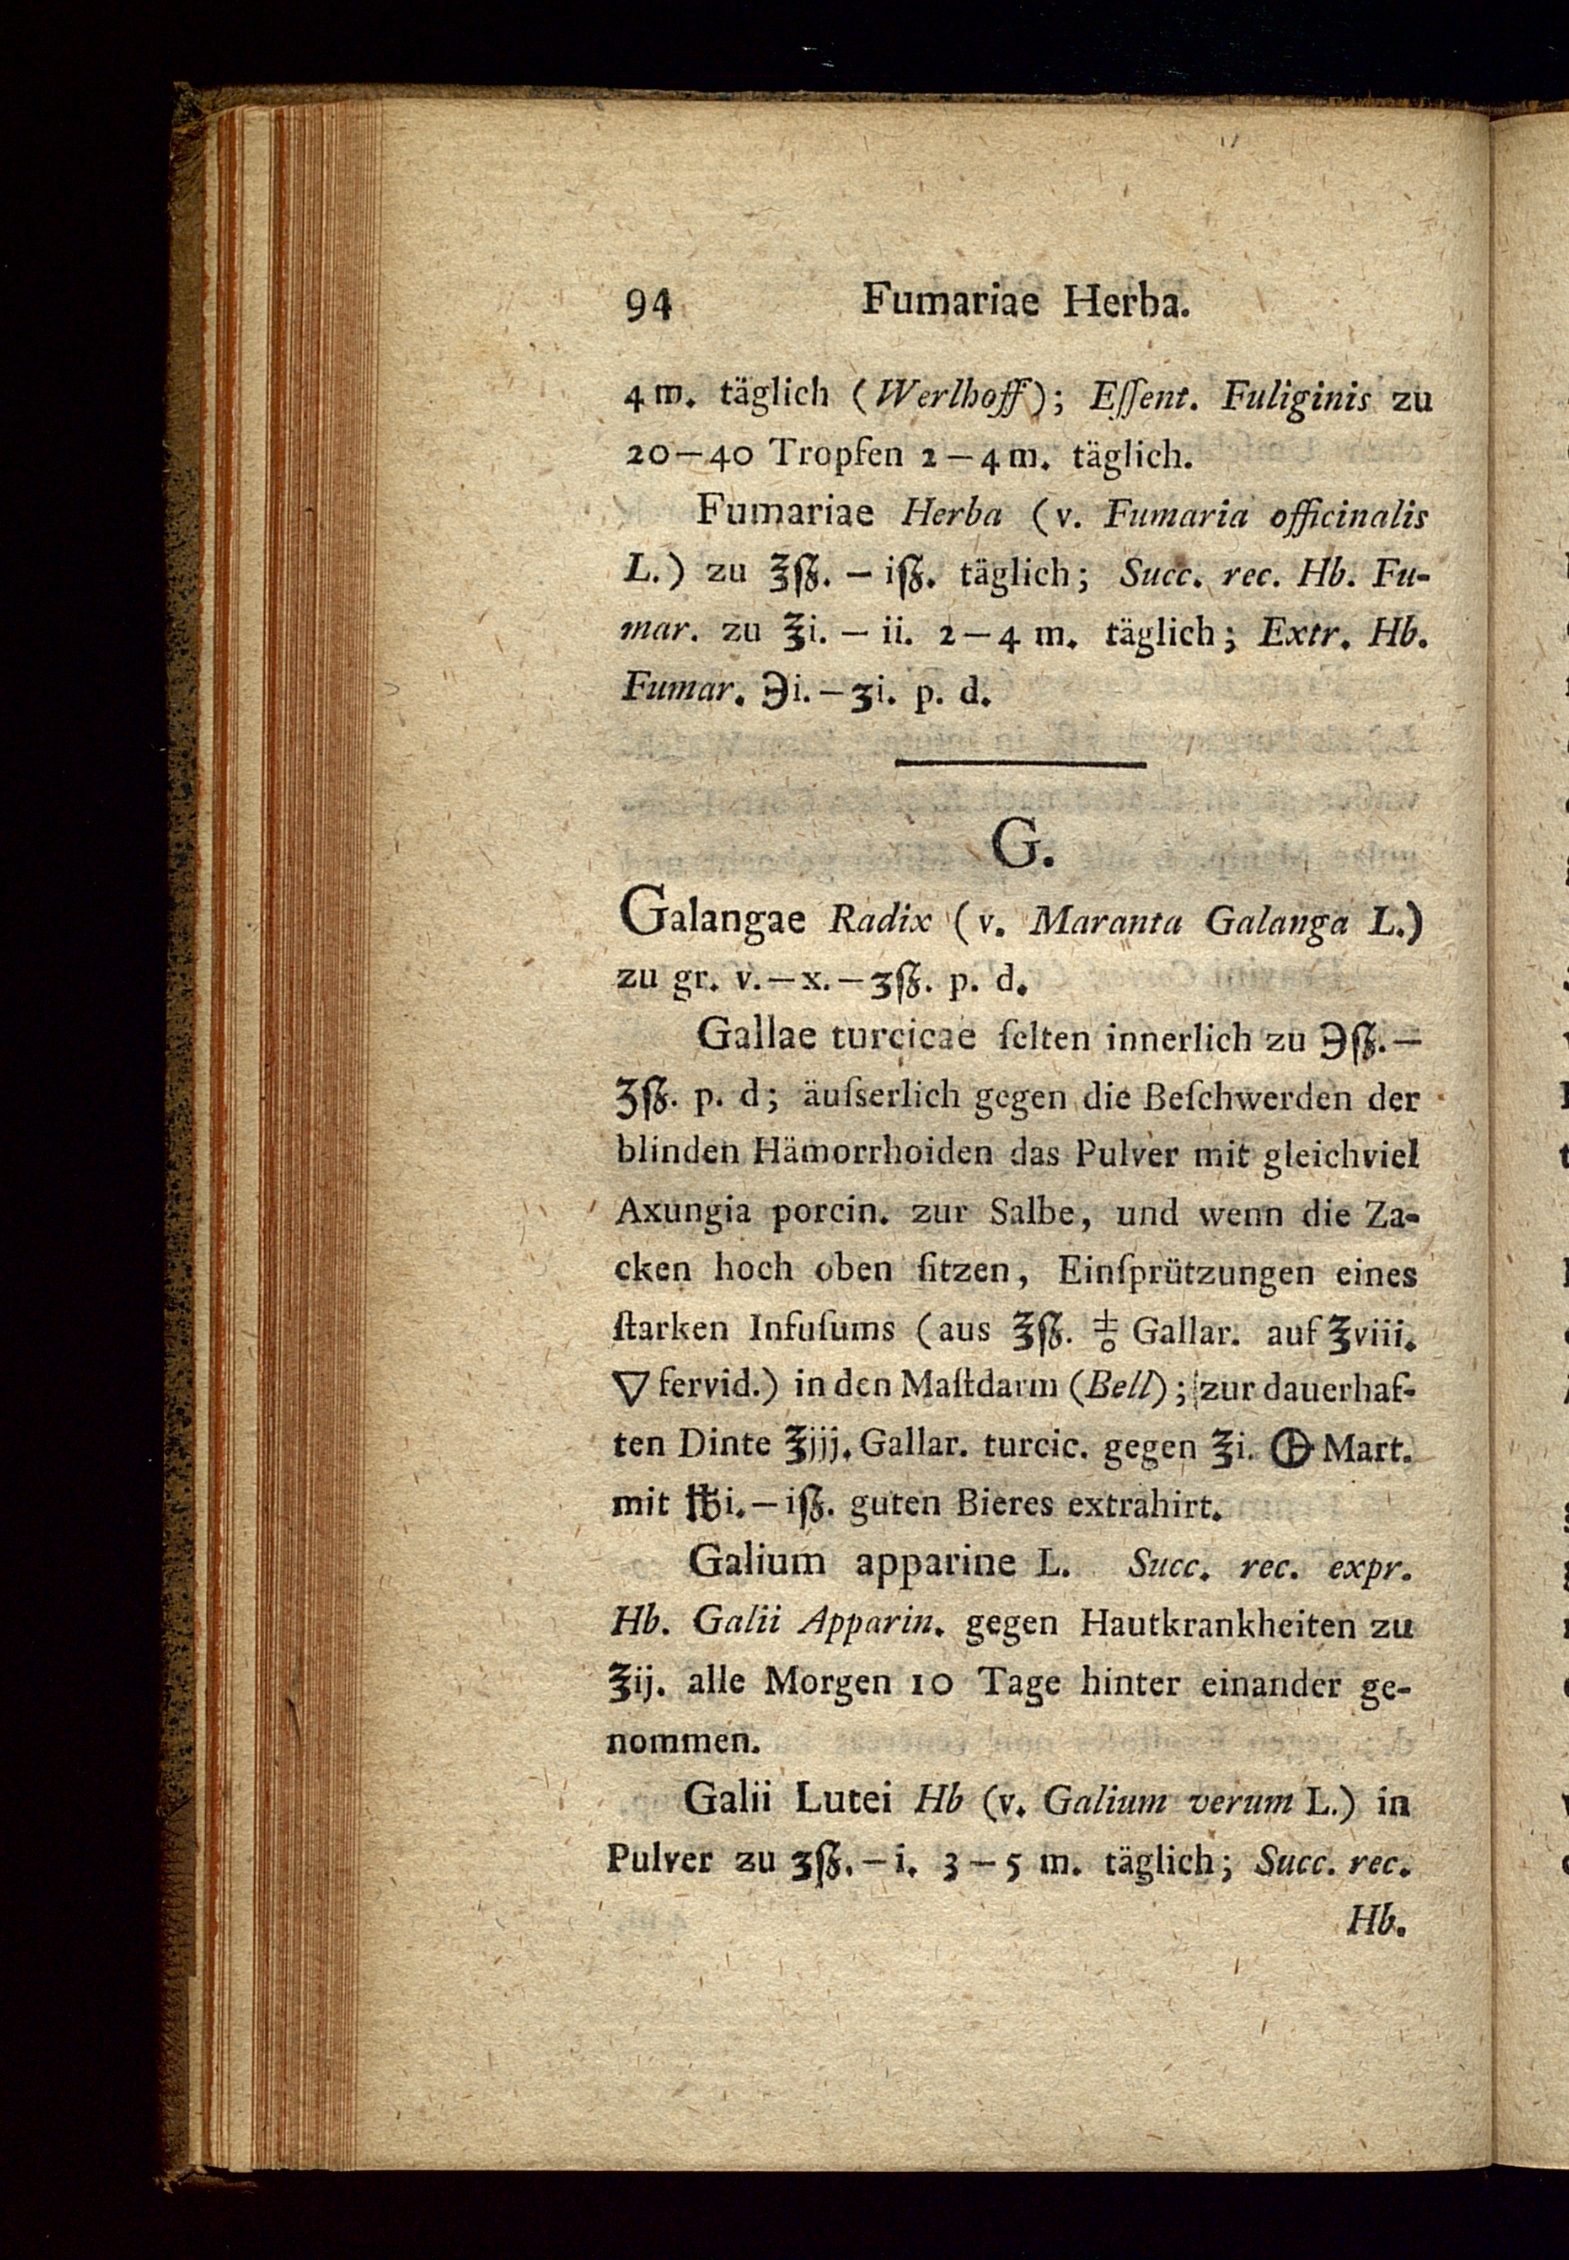 94 Fumariae Herba.
4 m. täglich (Werlhoff); Eſſent. Fuliginis zu
20—40 Tropfen 2—4 m. täglich.
Fumariae Herba (v. Fumaria officinalis
L.) zu ℥ſß. — iſß. täglich; Succ. rec. Hb. Fu-
mar. zu ℥i. — ii. 2—4 m. täglich; Extr. Hb.
Fumar. ℈i.—ʒi. p. d.
G.
Galangae Radix (v. Maranta Galanga L.)
zu gr. v.—x.—ʒſß. p. d.
Gallae turcicae ſelten innerlich zu ℈ſß.—
ʒſß. p. d; äuſserlich gegen die Beſchwerden der
blinden Hämorrhoiden das Pulver mit gleichviel
Axungia porcin. zur Salbe, und wenn die Za-
cken hoch oben ſitzen, Einſprützungen eines
ſtarken Infuſums (aus ℥ſß. ♁ Gallar. auf ℥viii.
▽ fervid.) in den Maſtdarm (Bell); zur dauerhaf-
ten Dinte ℥jjj. Gallar. turcic. gegen ℥i. 🜨 Mart.
mit ℔i.—iſß. guten Bieres extrahirt.
Galium apparine L. Succ. rec. expr.
Hb. Galii Apparin. gegen Hautkrankheiten zu
℥ij. alle Morgen 10 Tage hinter einander ge-
nommen.
Galii Lutei Hb (v. Galium verum L.) in
Pulver zu ʒſß.—i. 3—5 m. täglich; Succ. rec.
Hb.